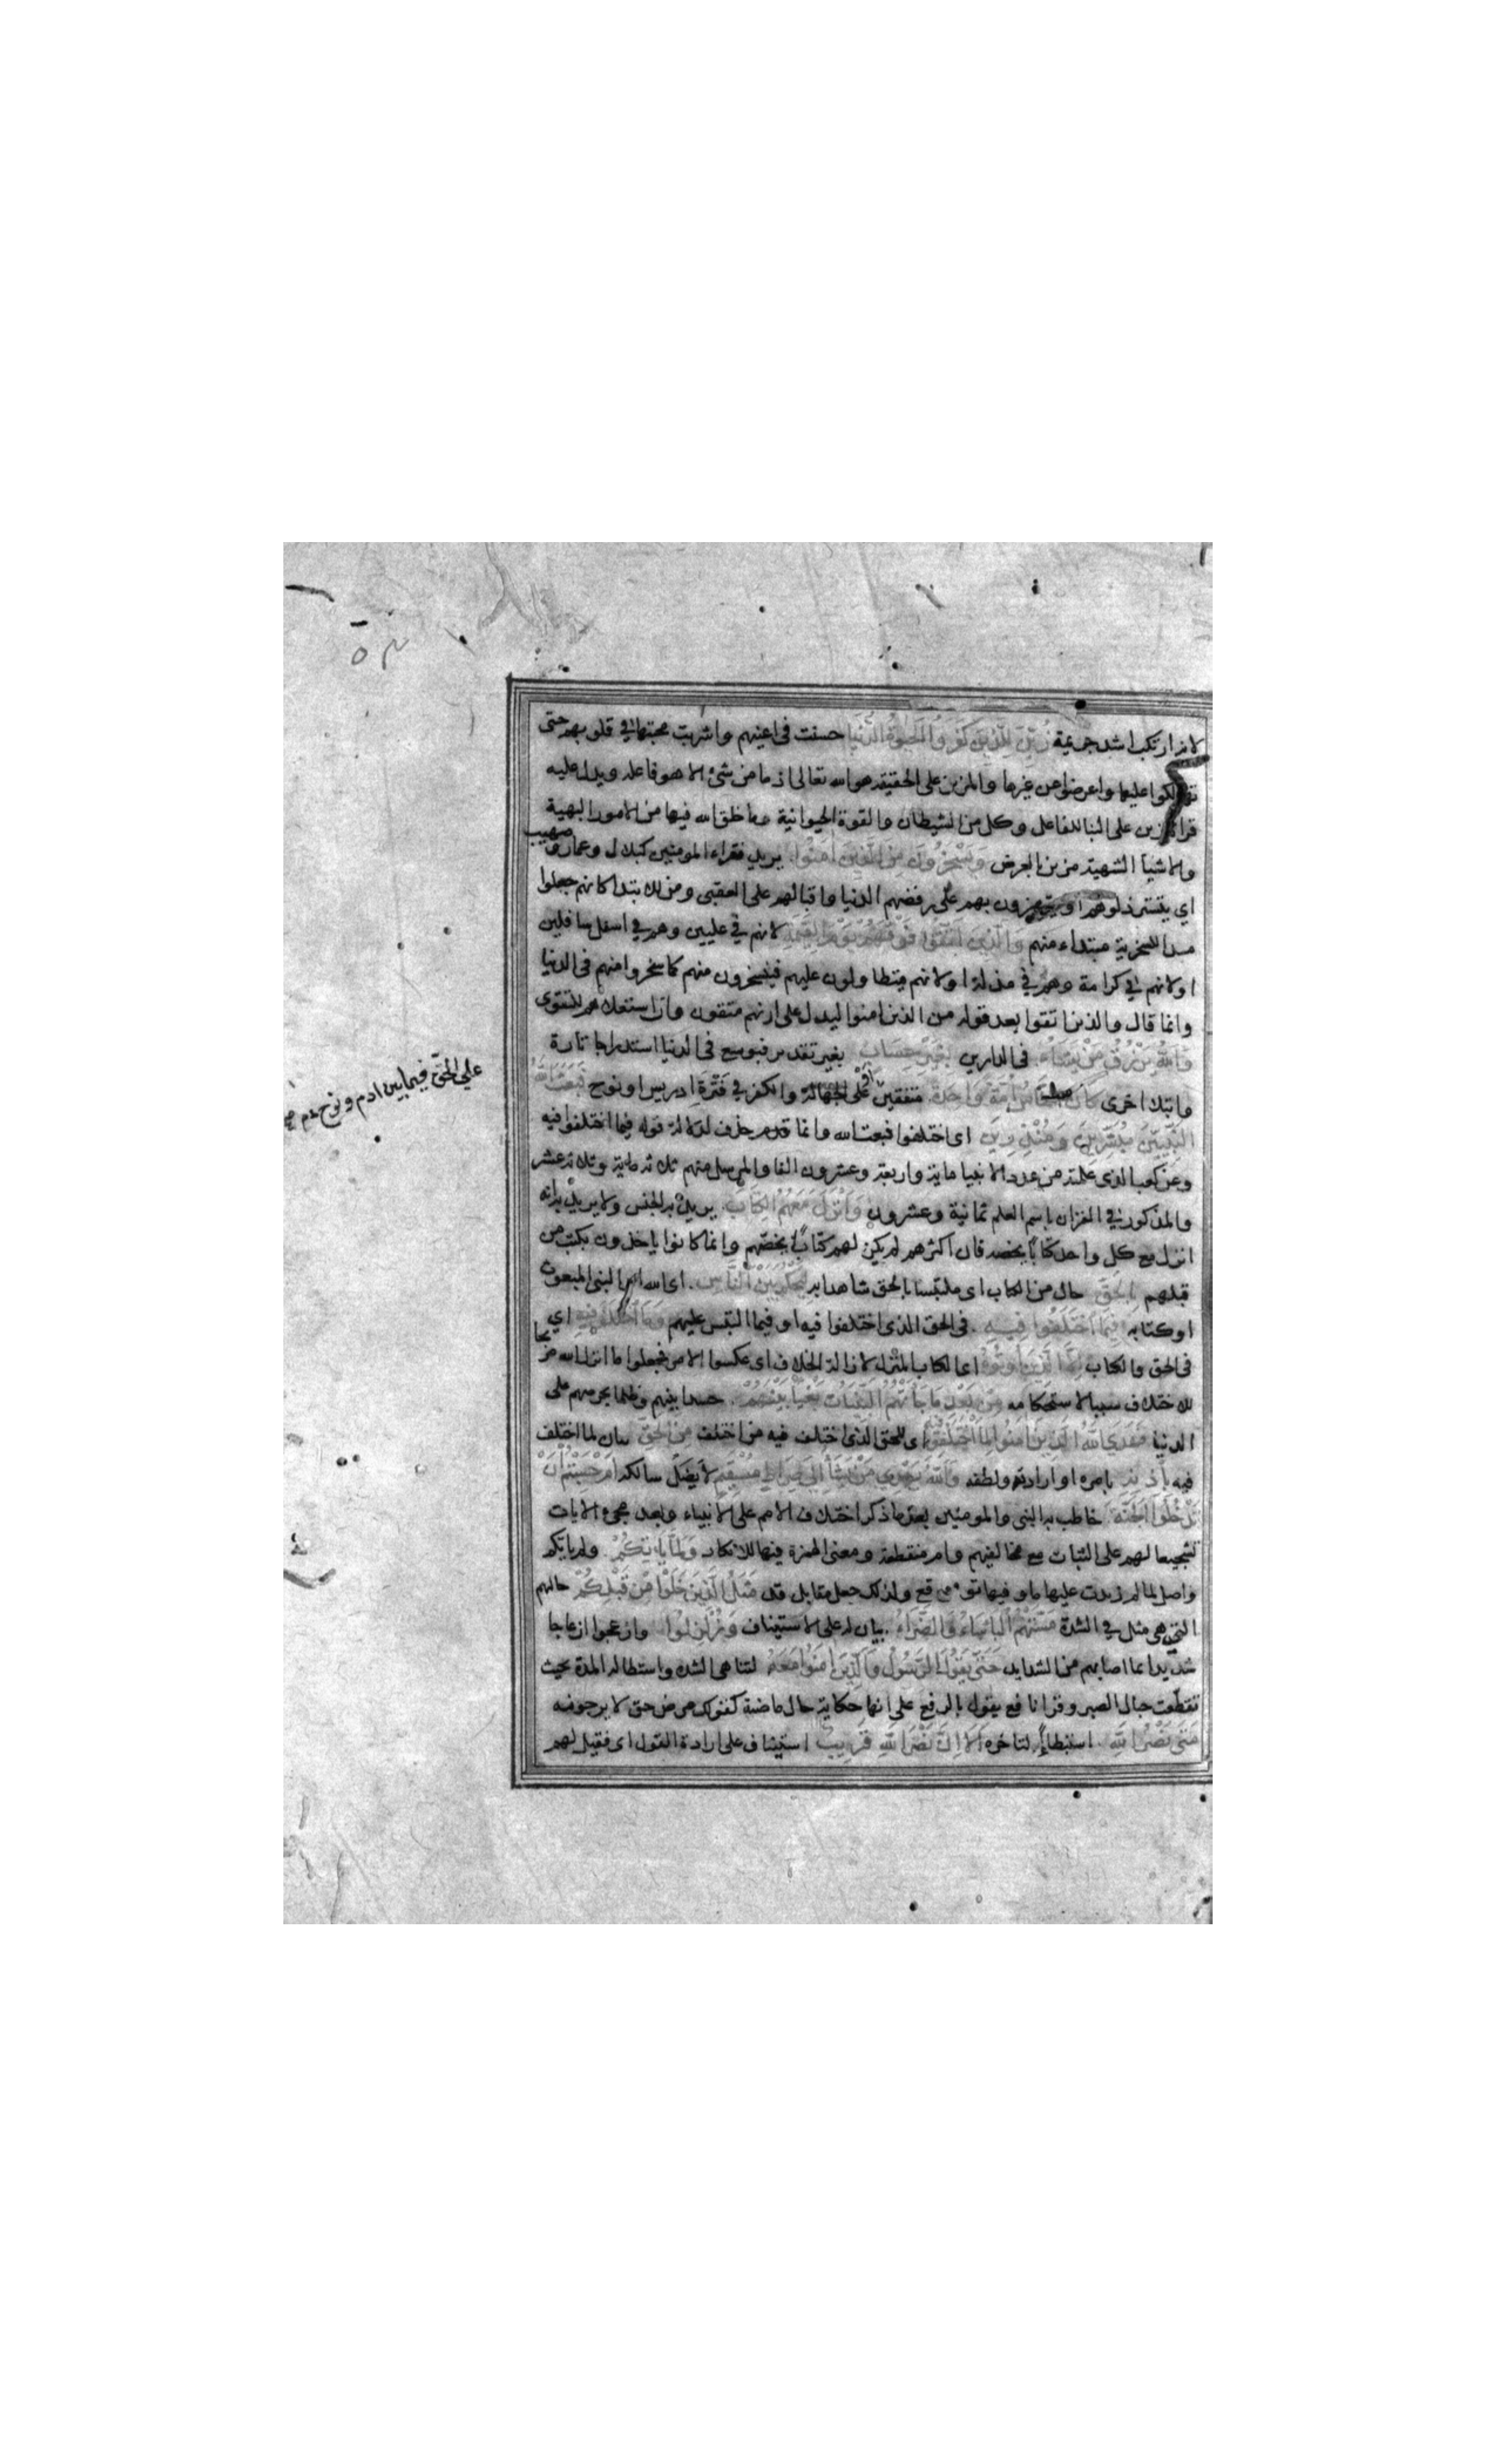 لانه ارتكب اشد جريمة زين للذين كفروا الحيوة الدنيا حسنت فى اعينهم واشربت محبتها في قلوبهم حتى
تهالكوا عليها واعرضوا عن غيرها والمزين على الحقيقة هو الله تعالى اذ ما من شئ الا هو فاعله ويدل عليه
قراءة زين على البنا للفاعل وكل من الشيطان والقوة الحيوانية وما خلق الله فيها من الامور البهية
والاشيا الشهية مزين بالعرض ويسخرون من الذين امنوا يريد فقراء المومنين كبلال وعمار وصهيب
اي يسترذلونهم او يستهزون بهم على رفضهم الدنيا واقبالهم على العقبى ومن للابتدا كانهم جعلوا
مبدا للسخرية مبتداء منهم والذين اتقوا فوقهم يوم القيمة لانهم في عليين وهم في اسفل سافلين
او لانهم في كرامة وهم في مذلة او لانهم يتطاولون عليهم فيسخرون منهم كما سخروا منهم فى الدنيا
وانما قال والذين اتقوا بعد قوله من الذين امنوا ليدل على انهم متقون وان استعلاهم للتقوى
والله يرزق من يشاء فى الدارين بغير حساب بغير تقدير فيوسع فى الدنيا استدراجا تارة
وابتلا اخرى كان الناس امة واحدة متفقين على الجهالة والكفر في فترة ادريس او نوح فبعث الله
النبيين مبشرين ومنذرين اى اختلفوا فبعث الله وانما حذف لدلالة قوله فيما اختلفوا فيه
وعن كعب الذى علمته من عدد الانبيا ماية واربعة وعشرون الفا والمرسل منهم ثلاثماية وثلاثة عشر
والمذكور في القران باسم العلم ثمانية وعشرون وانزل معهم الكتاب يريد به الجنس ولا يريد به انه
انزل مع كل واحد كتابا يخصه فان اكثرهم لم يكن لهم كتاب يخصهم وانما كانوا ياخذون بكتب من
قبلهم بالحق حال من الكتاب اى ملتبسا بالحق شاهدا به ليحكم بين الناس اى الله او النبى المبعوث
او كتابه فيما اختلفوا فيه فى الحق الذى اختلفوا فيه او فيما التبس عليهم وما اختلف فيه اي
فى الحق والكتاب الا الذين اوتوه اى الكتاب المنزل لازالة الخلاف اى عكسوا الامر فجعلوا ما انزل الله مزيحا
للاختلاف سببا لاستحكامه من بعد ما جاءتهم البينات بغيا بينهم حسدا بينهم وظلما بحرصهم على
الدنيا فهدى الله الذين امنوا لما اختلفوا فيه اى للحق الذى اختلف فيه من اختلف من الحق بيان لما اختلف
فيه باذنه بامره او ارادته ولطفه والله يهدي من يشا الى صراط مستقيم لا يضل سالكه ام حسبتم ان
تدخلوا الجنة خاطب به النبى والمومنين بعد ما ذكر اختلاف الامم على الانبياء وبعد مجىء الايات
تشجيعا لهم على الثبات مع مخالفيهم وام منقطعة ومعنى الهمزة فيها للانكار ولما ياتكم ولم ياتكم
واصل لما لم زيدت عليها ما وفيها توقع ولذلك جعل مقابل قد مثل الذين خلوا من قبلكم حالهم
التى هى مثل في الشدة مستهم الباساء والضراء بيان له على الاستيناف وزلزلوا وازعجوا ازعاجا
شديدا بما اصابهم من الشدايد حتى يقول الرسول والذين امنوا معه لتناهى الشدة واستطالة المدة بحيث
تقطعت حبال الصبر وقرا نافع يقول بالرفع على انها حكاية حال ماضية كقولك مرض حتى لا يرجونه
متى نصر الله استبطاء لتاخره الا ان نصر الله قريب استيناف على ارادة القول اى فقيل لهم
على الحق فيما بين ادم ونوح